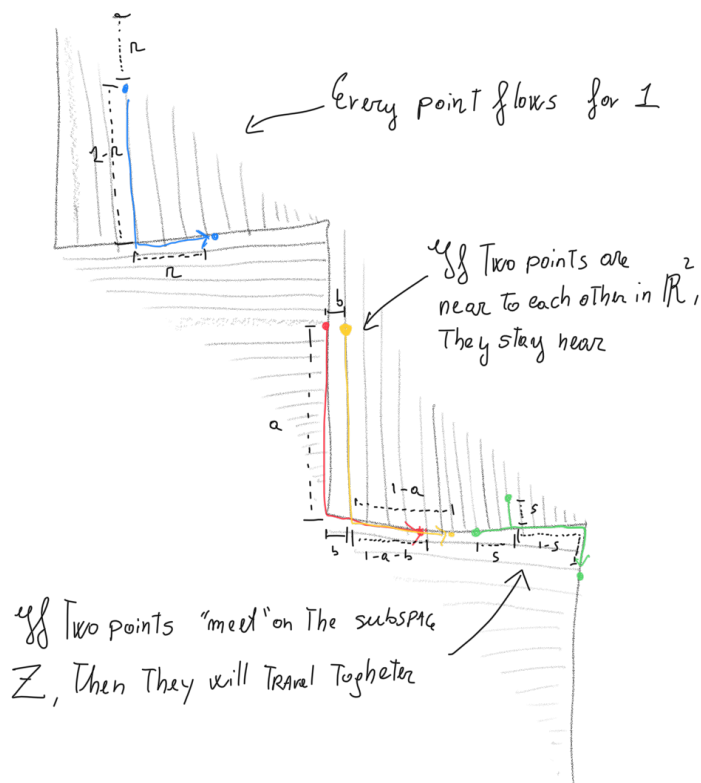 r
Every point flows for 1
1-r
r
If Two points are
near to each other in ℝ²,
They stay near
b
a
1-a
s
b
1-a-b
s
1-s
If Two points "meet" on The subspace
Z, Then They will Travel Togheter